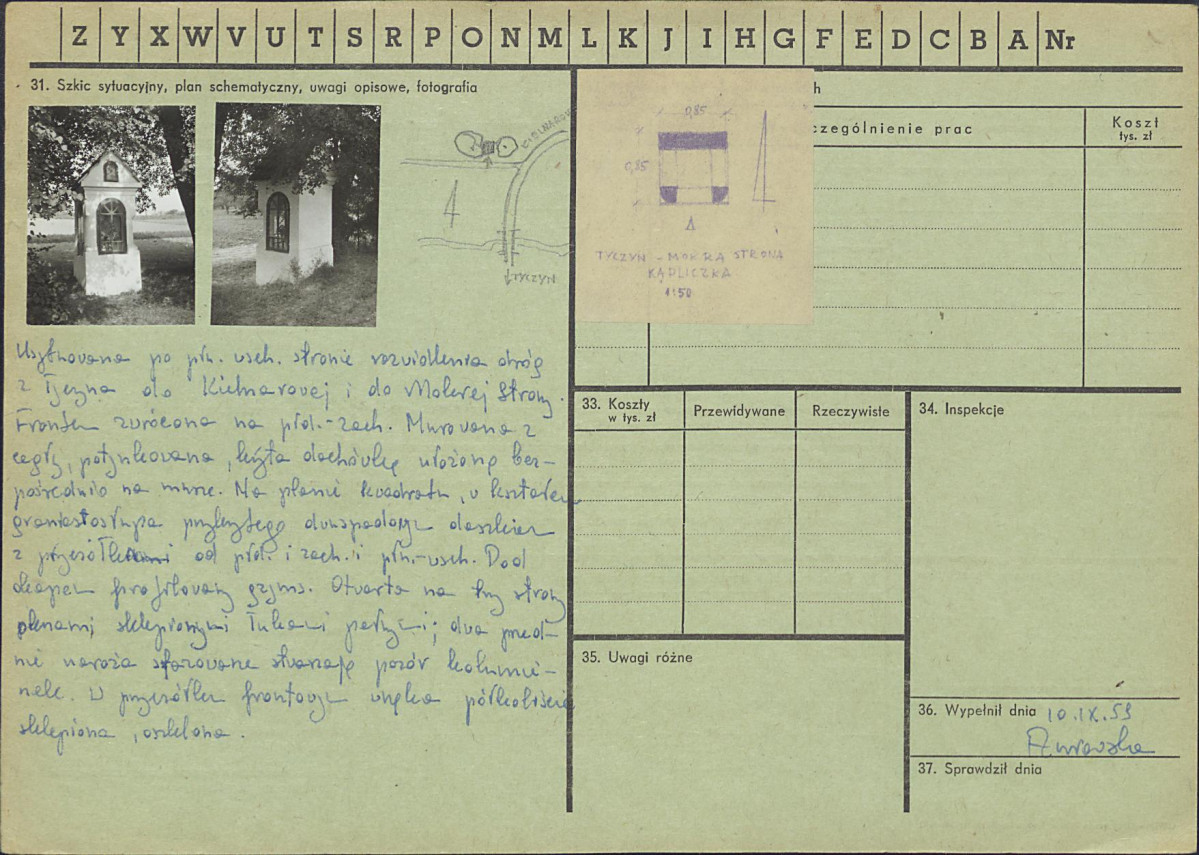 Z Y X W V U T S R P O N M L K J I H G F E D C B A Nr
31. Szkic sytuacyjny, plan schematyczny, uwagi opisowe, fotografia
TYCZYN
Usytuowana po płn. wsch. stronie rozwidlenia dróg
z Tyczyna do Kielnarowej i do Mokrej Strony.
Frontem zwrócona na płd.-zach. Murowana z
cegły, potynkowana, kryta dachówką ułożoną bez-
pośrednio na murze. Na planie kwadratu, w kształcie
graniastosłupa przykrytego dwuspadowym daszkiem
z przyczółkami od płd. i zach. i płn.-wsch. Pod
okapem profilowany gzyms. Otwarta na trzy strony
sklepionymi łukami pełnymi; dwa przed-
nie naroża sfazowane stwarzają pozór kolumie-
nek. W przyczółku frontowym wnęka półkoliście
sklepiona, oszklona.
0,85
0,85
TYCZYN - MOKRA STRONA
KAPLICZKA
1:50
h
czególnienie prac
Koszt
tys. zł
33. Koszty
w tys. zł
Przewidywane
Rzeczywiste
34. Inspekcje
35. Uwagi różne
36. Wypełnił dnia 10.IX.59
37. Sprawdził dnia